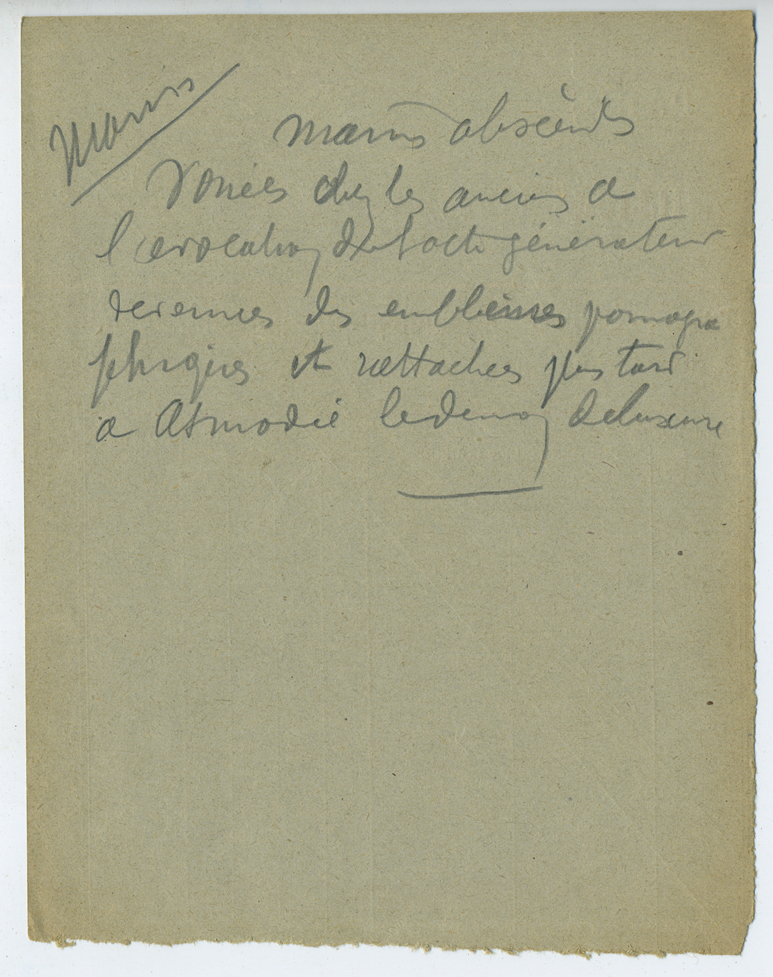 Mains
Mains obscènes
Vouées chez les anciens a
l'evocation de l'acte générateur
devenues des emblèmes pornogra
phiques et rattachées plus tard
a Asmodée le demon de luxure